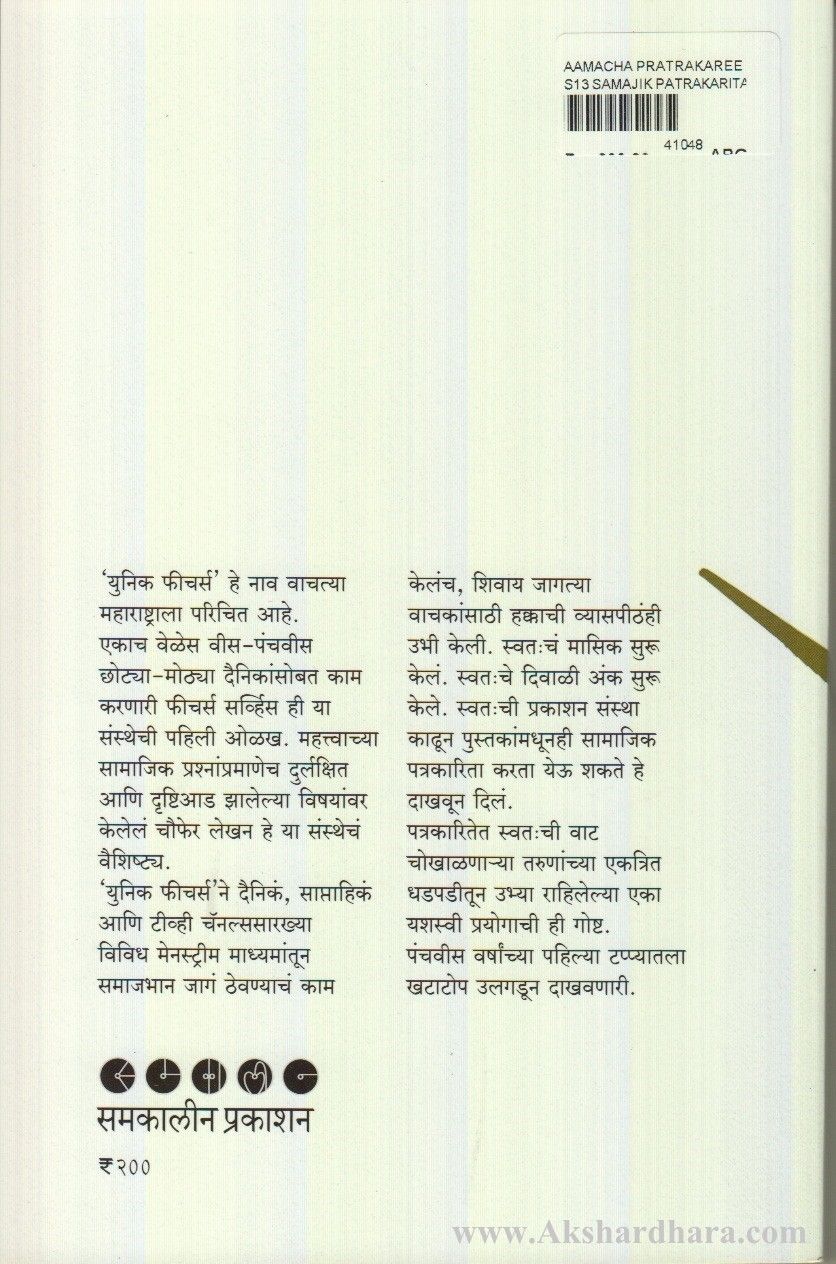 AAMACHA PRATRAKAREE
S13 SAMAJIK PATRAKARITA
41048
‘युनिक फीचर्स’ हे नाव वाचत्या
महाराष्ट्राला परिचित आहे.
एकाच वेळेस वीस-पंचवीस
छोट्या-मोठ्या दैनिकांसोबत काम
करणारी फीचर्स सर्व्हिस ही या
संस्थेची पहिली ओळख. महत्त्वाच्या
सामाजिक प्रश्नांप्रमाणेच दुर्लक्षित
आणि दृष्टिआड झालेल्या विषयांवर
केलेलं चौफेर लेखन हे या संस्थेचं
वैशिष्ट्य.
‘युनिक फीचर्स’ने दैनिकं, साप्ताहिकं
आणि टीव्ही चॅनल्ससारख्या
विविध मेनस्ट्रीम माध्यमांतून
समाजभान जागं ठेवण्याचं काम
केलंच, शिवाय जागत्या
वाचकांसाठी हक्काची व्यासपीठंही
उभी केली. स्वतःचं मासिक सुरू
केलं. स्वतःचे दिवाळी अंक सुरू
केले. स्वतःची प्रकाशन संस्था
काढून पुस्तकांमधूनही सामाजिक
पत्रकारिता करता येऊ शकते हे
दाखवून दिलं.
पत्रकारितेत स्वतःची वाट
चोखाळणाऱ्या तरुणांच्या एकत्रित
धडपडीतून उभ्या राहिलेल्या एका
यशस्वी प्रयोगाची ही गोष्ट.
पंचवीस वर्षांच्या पहिल्या टप्प्यातला
खटाटोप उलगडून दाखवणारी.
समकालीन प्रकाशन
₹२००
www.Akshardhara.com